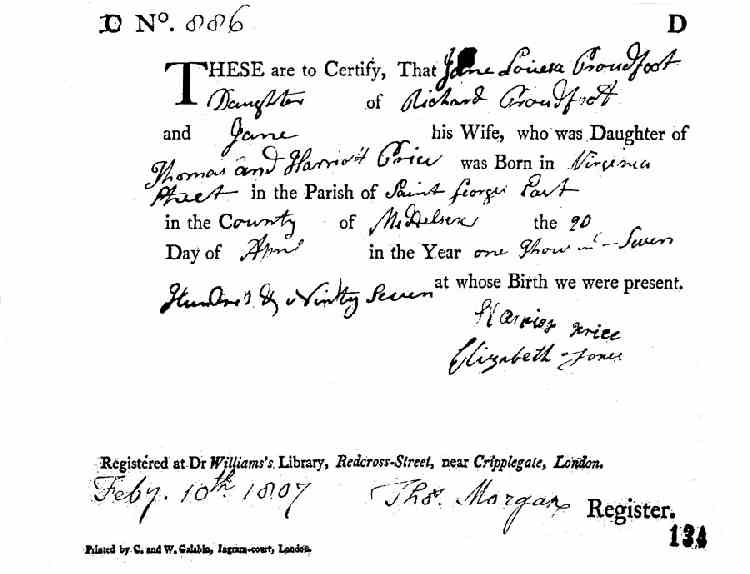 D Nº. 886 D
THESE are to Certify, That Jane Louisa Proudfoot
Daughter of Richard Proudfoot
and Jane his Wife, who was Daughter of
Thomas and Harriot Price was Born in Virginia
Street in the Parish of Saint Georges East
in the County of Middelsex the 20
Day of April in the Year one Thousand Seven
Hundred & Ninty Seven at whose Birth we were present.
Harriot Price
Elizabeth Jones
Registered at Dr Williams's Library, Redcross-Street, near Cripplegate, London.
Feby. 10th 1807 Thos. Morgan Register.
134
Printed by C. and W. Galabin, Ingram-court, London.